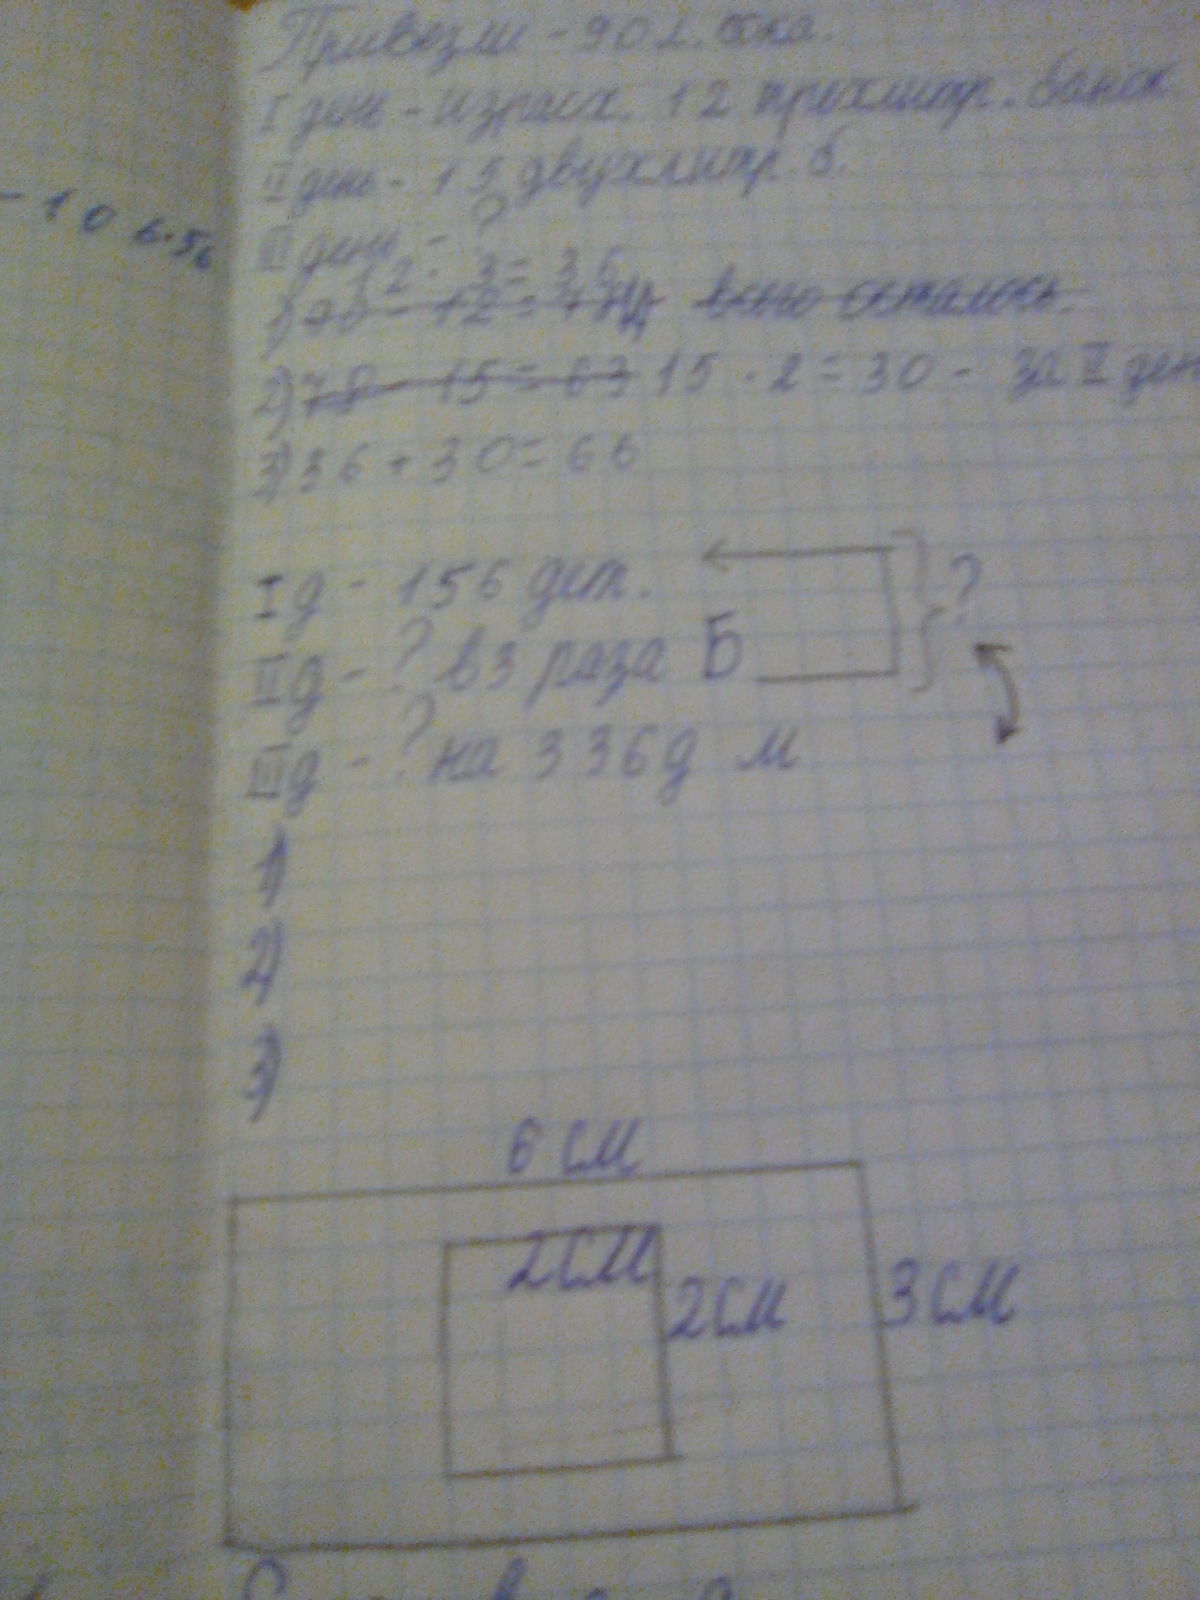 - 1 0 6.56
Привезли - 90 л. сока.
I день - израсх. 12 трёхлитр. банок
II день - 15 двухлитр. б.
III день - ?
12 · 3 = 36
1) 90 - 12 = 78 всего осталось.
2) 78 - 15 = 63 15 · 2 = 30 - за II ден
3) 36 + 30 = 66
I д - 156 дет.
II д - ? в 3 раза Б
?
III д - ? на 336 д м
1)
2)
3)
6 см
2 см
2 см
3 см